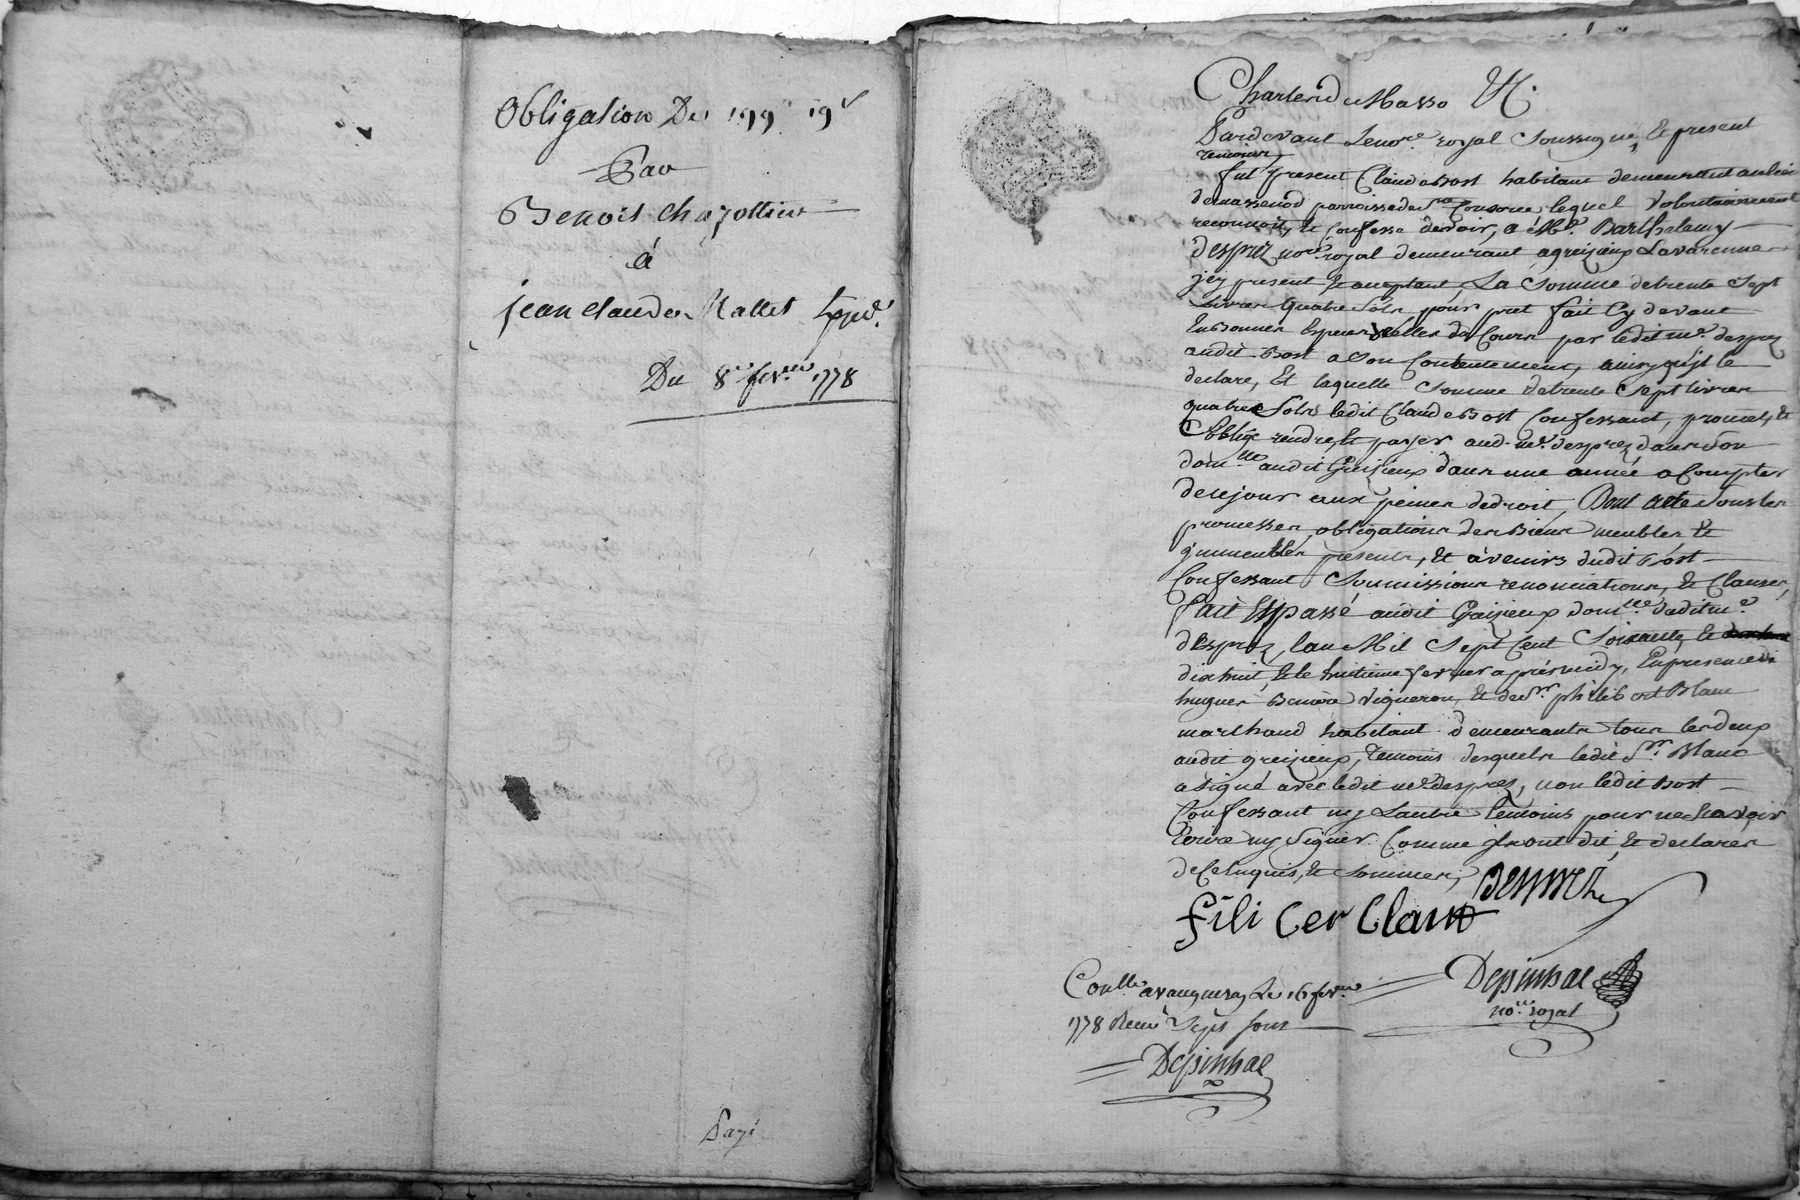 Obligation De 199# 19s
Par
Benoit Chazottier
à
jean Claude Mallet Exped.
Du 8e fevrier 1778
Payé
Pardevant Le nore. royal Soussigné, & present
temoins
fut present Claude Bost habitant demeurant au lieu
de parroisse de lequel Volontairement
reconnoit, & Confesse devoir, a Me. Barthelemy
desprez nore. royal demeurant a greizieux Lavarenne
jcy present & acceptant, La Somme de trente Sept
Livres quatre Sols pour pret fait Cy devant
En Bonnes Especes réelles du Cours par ledit me. desprez
audit Bost a Son Contentement, ainsy qu'jl le
declare, Et laquelle Somme de trente Sept livres
quatre Sols ledit Claude Bost Confessant, promet, &
Oblige rendre, & payer aud. me. desprez dans Son
domlle. audit Greizieux dans une année a Compter
de ce jour aux peines de droit, Dont acte Sous les
promesses, obligations des Biens meubles &
jmmeubles presents, & àvenirs dudit Bost
Confessant Soumissions renonciations, & Clauses,
fait & passé audit Greizieux domlle. dudit me.
desprez, l'an Mil Sept Cent Soixante, &
dix huit, & le huitieme fevrier après midy, En presence de
hugues Vigneron, & de Sr. philibert Blanc
marchand habitant demeurants tous les deux
audit greizieux, temoins desquels ledit Sr. Blanc
a signé avec ledit me. desprez, non ledit Bost
Confessant ny Lautre temoins pour ne Scavoir
Ecrire ny Signer Comme jls ont dit, & declarer
de Ce enquis, & Sommés,
desprez
fili Cer Clan
Depinhal
nore. royal
Conllé. a vaugneray Le 16 fevrier
1778 Recu Sept Sous
Depinhal